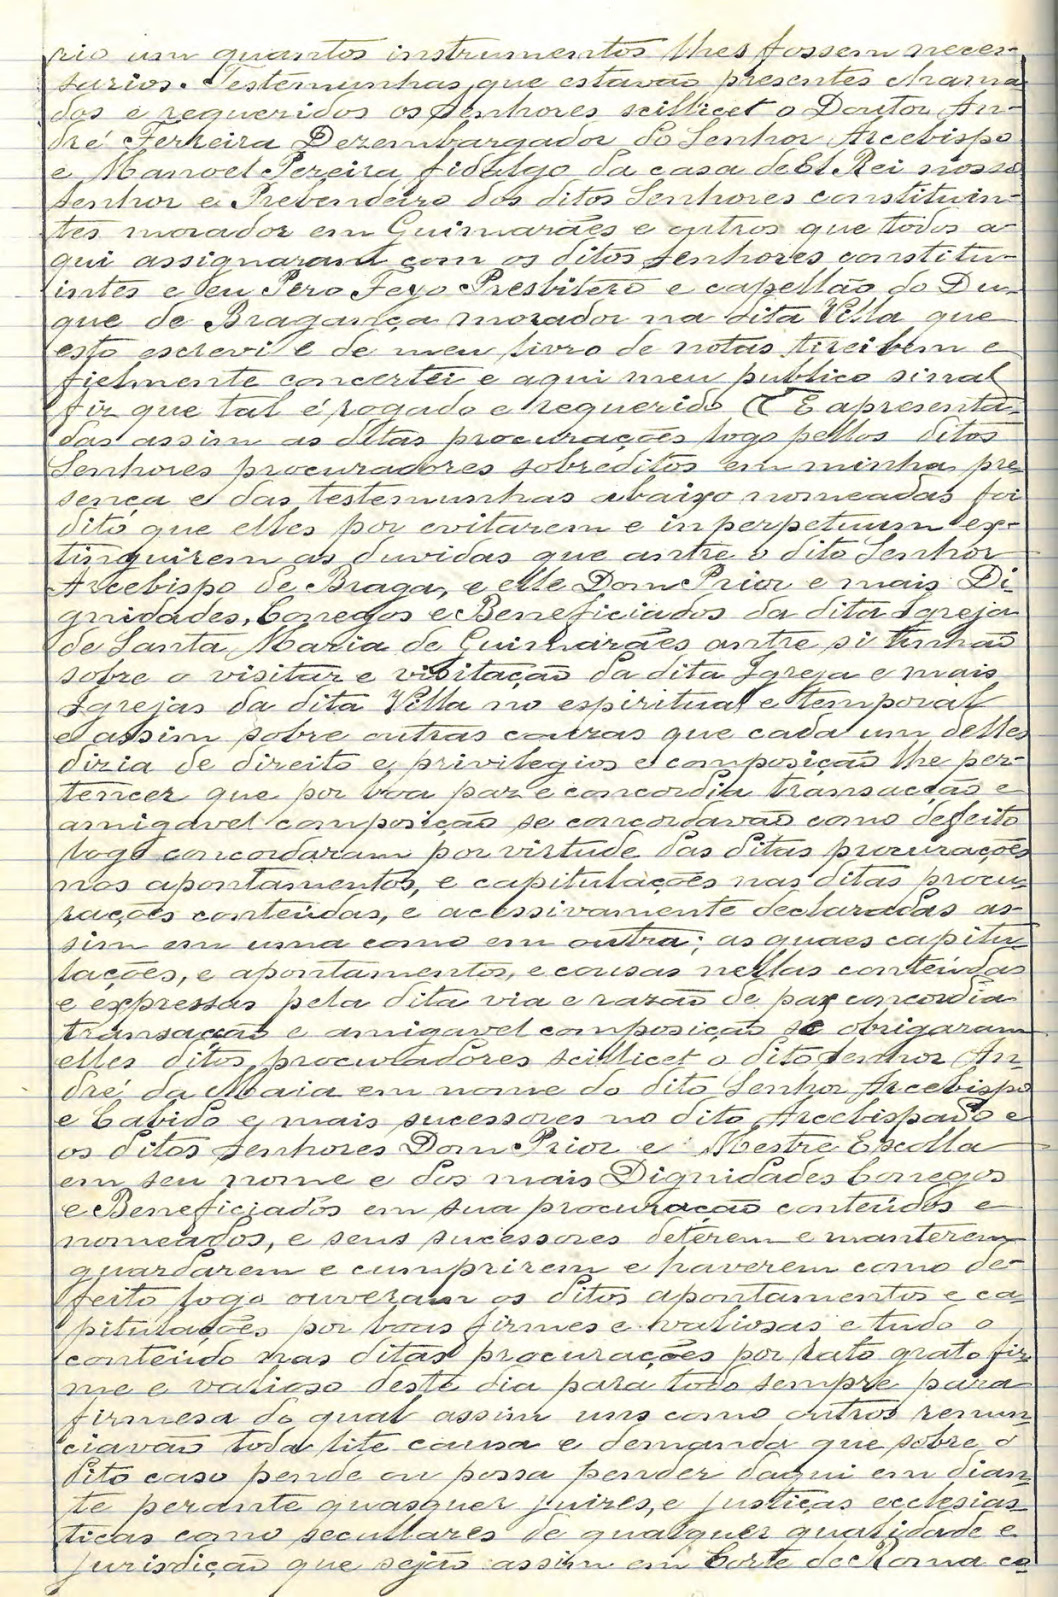 rio um quantos instrumentos lhes fossem neces-
sarios. Testemunhas que estavão presentes chama
dos e requeridos os Senhores scillicet o Doutor An-
dré Ferreira Dezembargador do Senhor Arcebispo
e Manoel Pereira fidalgo da casa de El Rei nosso
Senhor e Prebendeiro dos ditos Senhores constituin-
tes morador em Guimarães e outros que todos a-
qui assignaram com os ditos Senhores constitu-
intes e eu Pero Feyo Presbitero e capellão do Du-
que de Bragança morador na dita Villa que
esto escrevi e de meu livro de notas tirei bem e
fielmente concertei e aqui meu publico sinal
fiz que tal é rogado e requerido E apresenta-
das assim as ditas procurações logo pellos ditos
Senhores procuradores sobreditos em minha pre-
sença e das testemunhas abaixo nomeadas foi
dito que elles por evitarem e in perpetuum ex-
tinguirem as duvidas que antre o dito Senhor
Arcebispo de Braga, e elle Dom Prior e mais Di-
gnidades, Conegos e Beneficiados da dita Igreja
de Santa Maria de Guimarães antre si tinhão
sobre o visitar e visitação da dita Igreja e mais
Igrejas da dita Villa no espiritual e temporal
e assim sobre outras couzas que cada um delles
dizia de direito e privilegios e composição lhe per-
tencer que por boa paz e concordia transacção e
amigavel composição se concordavão como defeito
logo concordaram por virtude das ditas procurações
nos apontamentos, e capitulações nas ditas procu-
rações conteúdas, e acessivamente declaradas as-
sim em uma como em outra; as quaes capitu-
lações, e apontamentos, e cousas nellas conteúdas
e expressas pela dita via e razão de paz concordia
transacção e amigavel composição se obrigaram
elles ditos procuradores scillicet o dito Senhor An-
dré da Maia em nome do dito Senhor Arcebispo
e Cabido e mais sucessores no dito Arcebispado e
os ditos Senhores Dom Prior e Mestre Escolla
em seu nome e dos mais Dignidades Conegos
e Beneficiados em sua procuração conteúdos e
nomeados, e seus sucessores deterem e manterem
guardarem e cumprirem e haverem como de-
feito logo ouveram os ditos apontamentos e ca-
pitulações por boas firmes e valiosas e tudo o
conteúdo nas ditas procurações por rato grato fir-
me e valioso deste dia para todo sempre para
firmesa do qual assim uns como outros renun-
ciavão toda lite causa e demanda que sobre o
dito caso pende ou possa pender daqui em dian-
te perante quasquer juizes, e justiças ecclesias-
ticas como secullares de qualquer qualidade e
jurisdição que sejão assim em Corte de Roma co-